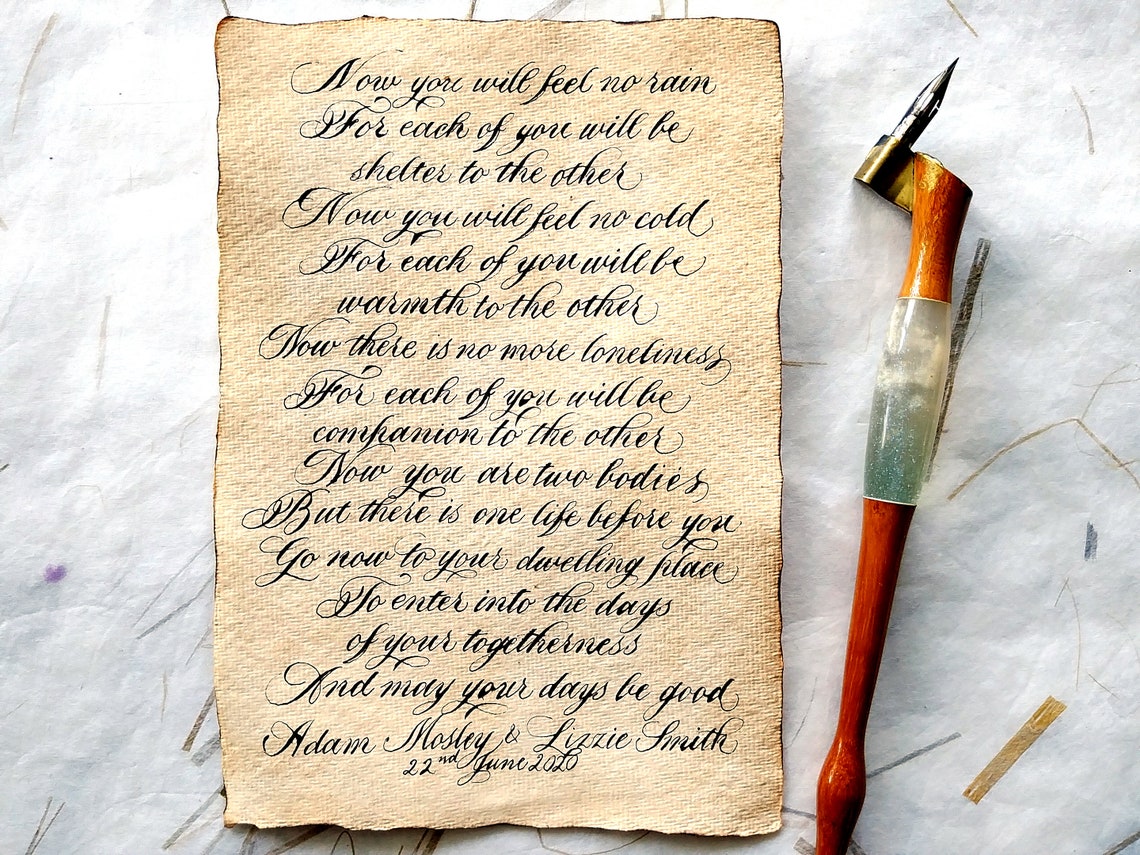 Now you will feel no rain
For each of you will be
shelter to the other
Now you will feel no cold
For each of you will be
warmth to the other
Now there is no more loneliness
For each of you will be
companion to the other
Now you are two bodies
But there is one life before you
Go now to your dwelling place
To enter into the days
of your togetherness
And may your days be good
Adam Mosley & Lizzie Smith
22nd June 2020